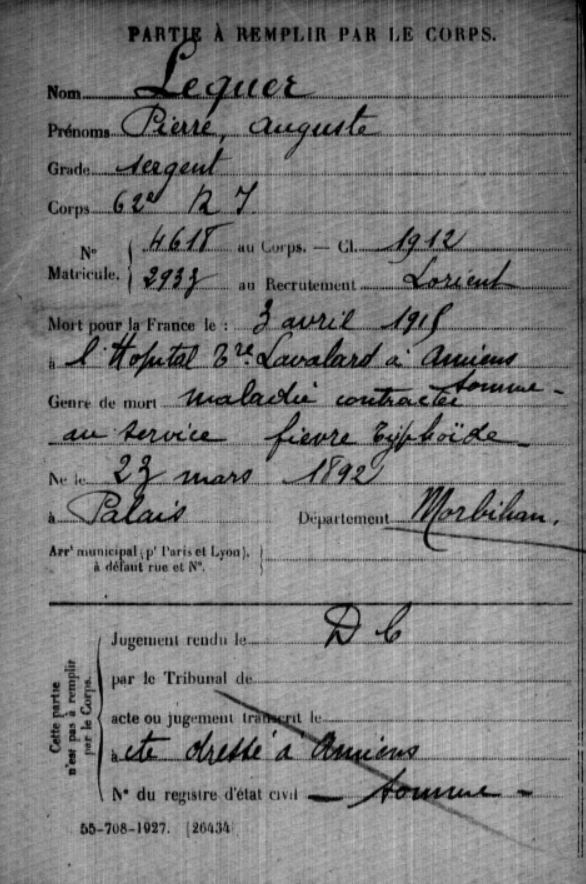 PARTIE À REMPLIR PAR LE CORPS.
Nom Lequer
Prénoms Pierre, Auguste
Grade sergent
Corps 62e R I
No Matricule. 4618 au Corps. — Cl. 1912
2933 au Recrutement Lorient
Mort pour la France le : 3 avril 1915
à l'Hopital Lavalard à Amiens
Somme -
Genre de mort maladie contractée
au service fievre typhoïde
Né le 23 mars 1892
à Palais Département Morbihan.
Arrt municipal (pr Paris et Lyon),
à défaut rue et No.
Cette partie n'est pas à remplir par le Corps.
Jugement rendu le D C
par le Tribunal de
acte ou jugement transcrit le
à cte dressé à Amiens
No du registre d'état civil — Somme -
55-708-1927. [26434]